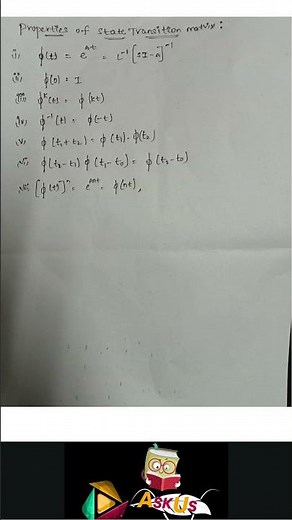 Properties of state Transition matrix:
i, ϕ(t) = e^At = L^-1 [SI-A]^-1
ii, ϕ(0) = I
iii, ϕ^k(t) = ϕ(kt)
iv, ϕ^-1(t) = ϕ(-t)
v, ϕ(t1+t2) = ϕ(t1)·ϕ(t2)
vi, ϕ(t2-t1) ϕ(t1-t0) = ϕ(t2-t0)
vii, [ϕ(t)]^n = e^Ant = ϕ(nt),
ASK US